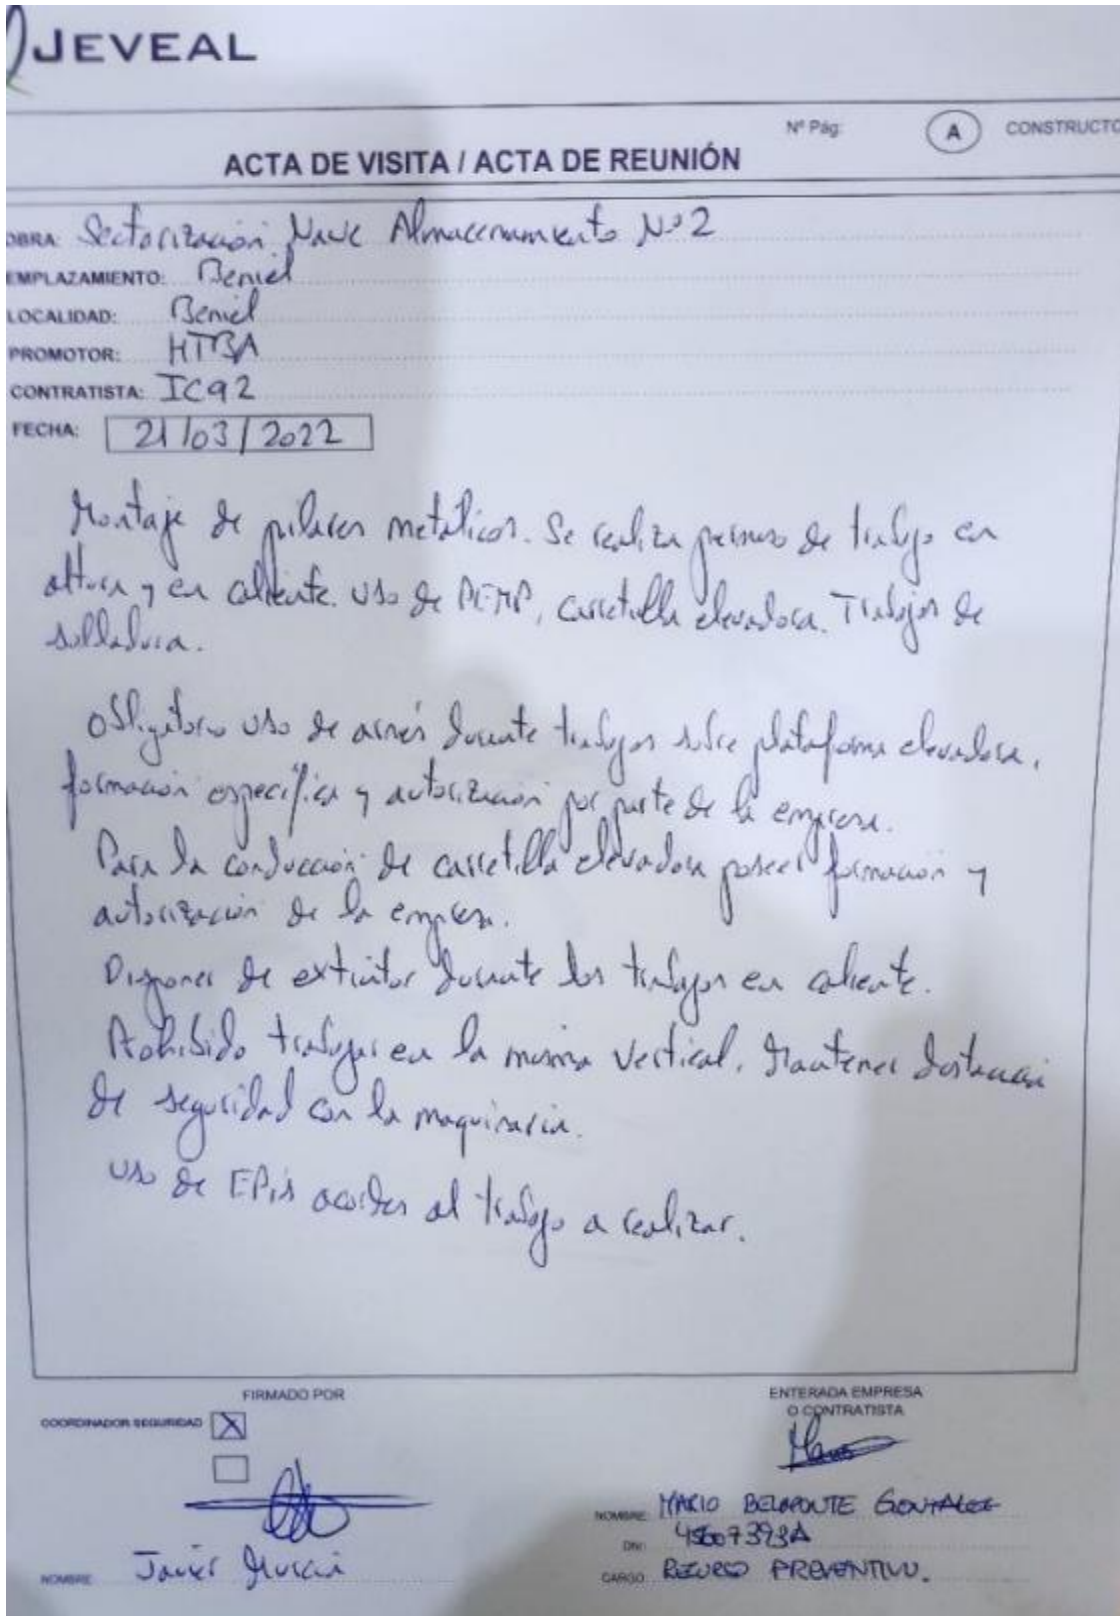 JEVEAL
Nº Pág: A CONSTRUCTO
ACTA DE VISITA / ACTA DE REUNIÓN
OBRA: Sectorización Nave Almacenamiento Nº2
EMPLAZAMIENTO: Beniel
LOCALIDAD: Beniel
PROMOTOR: HTBA
CONTRATISTA: IC92
FECHA: 21/03/2022
Montaje de pilares metálicos. Se realiza permiso de trabajo en
altura y en caliente. Uso de PEMP, carretilla elevadora. Trabajos de
soldadura.
Obligatorio uso de arnés durante trabajos sobre plataforma elevadora,
formación específica y autorización por parte de la empresa.
Para la conducción de carretilla elevadora poseer formación y
autorización de la empresa.
Disponer de extintor durante los trabajos en caliente.
Prohibido trabajar en la misma vertical. Mantener distancia
de seguridad con la maquinaria.
Uso de EPis acordes al trabajo a realizar.
FIRMADO POR
ENTERADA EMPRESA
O CONTRATISTA
COORDINADOR SEGURIDAD X
NOMBRE: MARIO BELAPONTE GONZALEZ
DNI:
CARGO: RECURSO PREVENTIVO.
NOMBRE: Javier Murcia